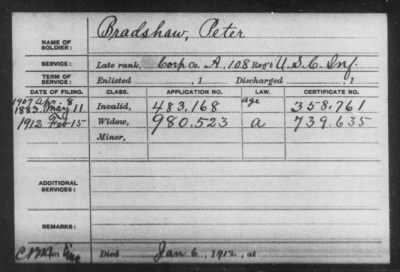 Bradshaw, Peter
NAME OF SOLDIER:
SERVICE: Late rank, Corp. Co. A, 108 Reg't U.S.C. Inf.
TERM OF SERVICE: Enlisted , 1 Discharged , 1
DATE OF FILING. CLASS. APPLICATION NO. LAW. CERTIFICATE NO.
1907 Apr. 8 age
1883 May 11 Invalid, 483.168 358.761
1912 Feb 15 Widow, 980.523 a 739.635
Minor,
ADDITIONAL SERVICES:
REMARKS:
Died Jan 6, 1912, at